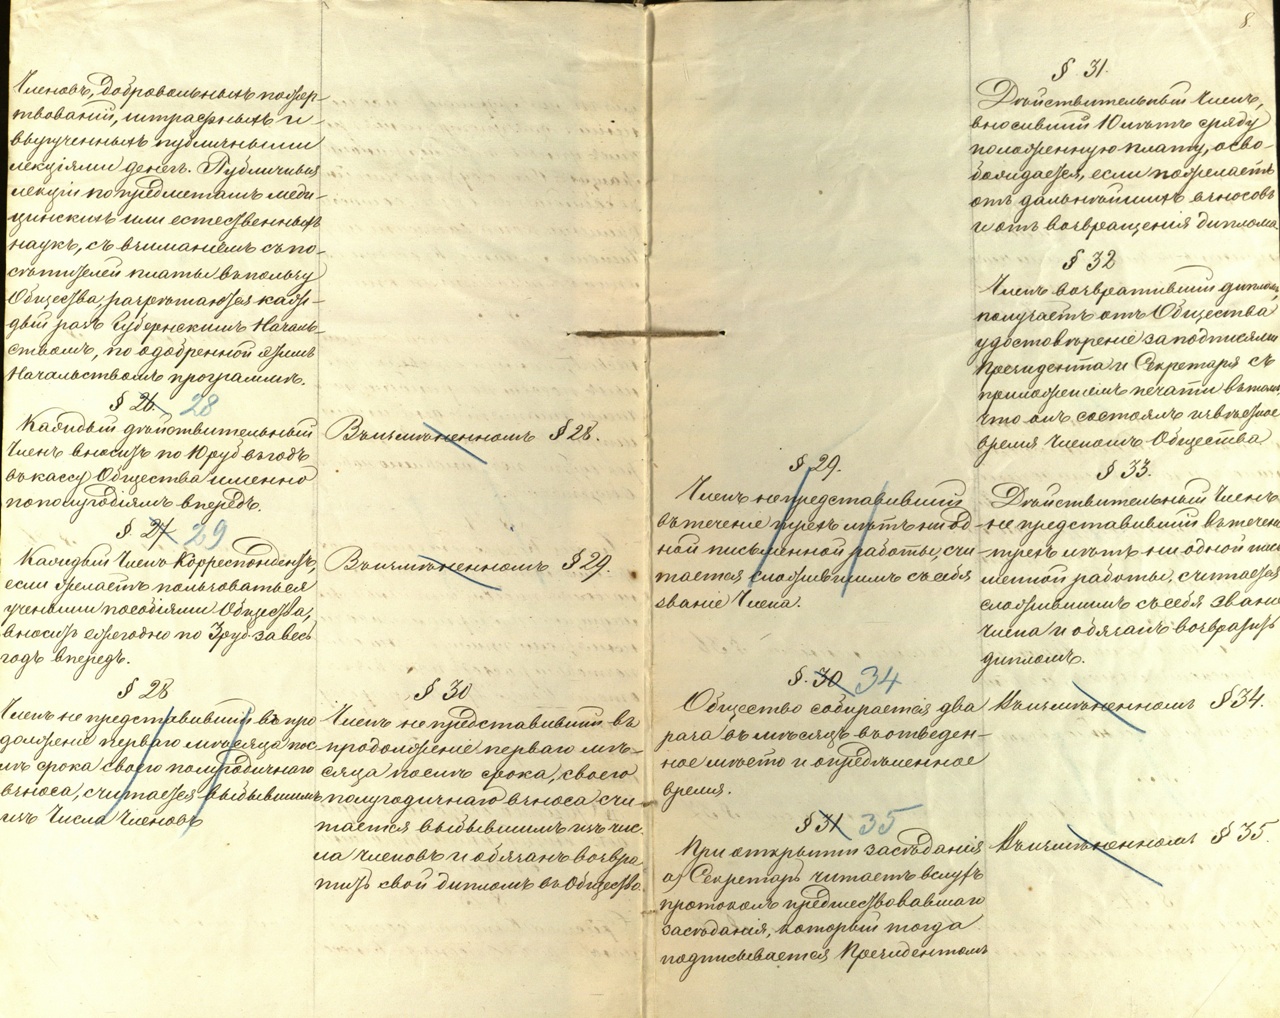 Членовъ, добровольныхъ пожер-
твованій, штрафныхъ и
вырученныхъ публичными
лекціями денегъ. Публичныя
лекціи по предметамъ меди-
цинскихъ или естественныхъ
наукъ, съ вниманіемъ съ по-
сѣтителей платы въ пользу
Общества, разрѣшаются каж-
дый разъ Губернскимъ Началь-
ствомъ, по одобренной этимъ
Начальствомъ программѣ.
§ 26. 28
Каждый дѣйствительный
Членъ вноситъ по 10 руб въ годъ
въ кассу Общества именно
по полугодіямъ впередъ.
§ 27 29
Каждый Членъ Корреспондентъ,
если желаетъ пользоваться
учеными пособіями Общества,
вноситъ ежегодно по 3 руб за весь
годъ впередъ.
§ 28
Членъ не представившій въ про
долженіе перваго мѣсяца пос-
лѣ срока своего полугодичнаго
взноса, считается выбывшимъ
изъ Числа Членовъ
Въ измѣненномъ § 28.
Въ измѣненномъ § 29.
§ 30
Членъ не представившій въ
продолженіе перваго мѣ-
сяца послѣ срока, своего
полугодичнаго взноса счи-
тается выбывшимъ изъ чис-
ла членовъ и обязанъ возвра-
тить свой дипломъ въ Общество.
8.
§ 29.
Членъ непредставившій
въ теченіе трехъ лѣтъ ни од
ной письменной работы, счи-
тается сложившимъ съ себя
званіе Члена.
§. 30 34
Общество собирается два
раза въ мѣсяцъ въ отведен-
ное мѣсто и опредѣленное
время.
§ 31 35
При открытіи засѣданія
а) Секретарь читаетъ вслухъ
протоколъ предшествовавшаго
засѣданія, который тогда
подписывается Президентомъ
§ 31.
Дѣйствительный Членъ,
вносившій 10 лѣтъ сряду
положенную плату, осво-
бождается, если пожелаетъ
отъ дальнѣйшихъ взносовъ
и отъ возвращенія диплома.
§ 32
Членъ возвратившій дипломъ,
получаетъ отъ Общества
удостовѣреніе за подписями
Президента и Секретаря съ
приложеніемъ печати въ томъ,
что онъ состоялъ извѣстное
время Членомъ Общества
§ 33.
Дѣйствительный Членъ
не представившій въ течен
трехъ лѣтъ ни одной пись
менной работы, считается
сложившимъ съ себя звані
Члена и обязанъ возвратить
дипломъ.
Въ измѣненномъ § 34.
Въ измѣненномъ § 35.